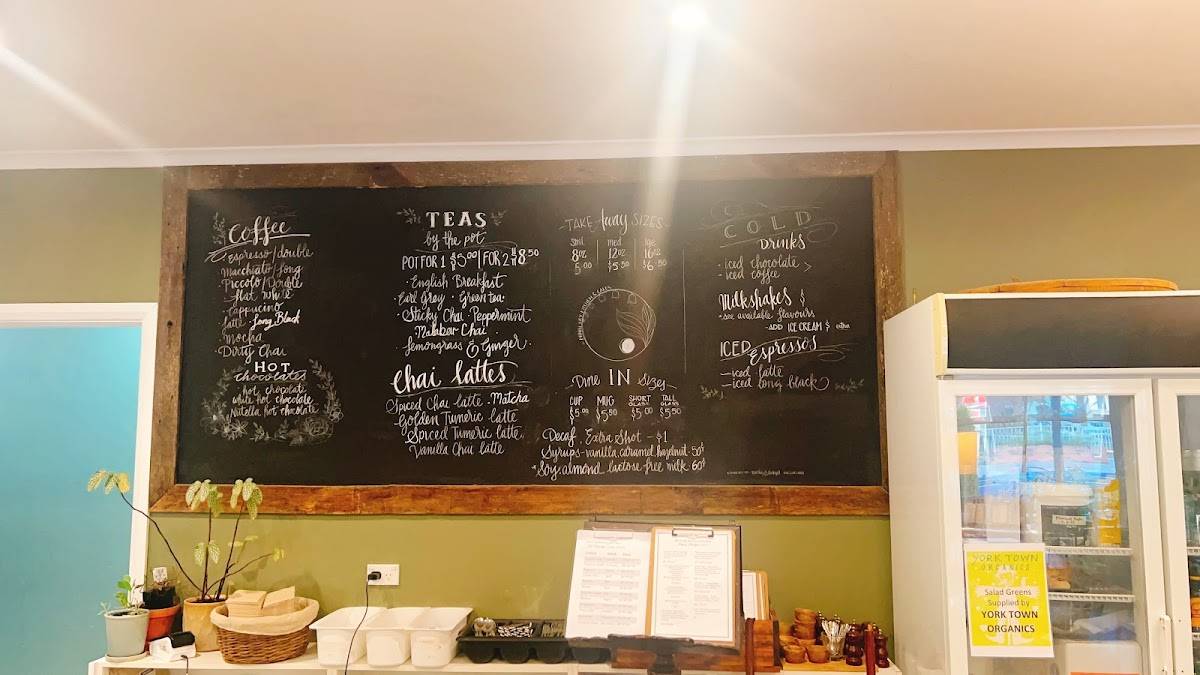 Coffee
Espresso/double
Macchiato/Long
Piccolo/Double
Flat White
Cappucino
Latte · Long Black
Mocha
Dirty Chai
HOT
chocolates
hot chocolate
white hot chocolate
Nutella hot chocolate
TEAS
by the pot
POT FOR 1 $5.00 | FOR 2 $8.50
· English Breakfast
· Earl Grey · Green tea ·
· Sticky Chai · Peppermint
· Malabar Chai
· Lemongrass & Ginger ·
Chai Lattes
Spiced Chai latte · Matcha
Golden Tumeric latte
Spiced Tumeric latte
Vanilla Chai latte
TAKE Away SIZES
Sml | med | lge
8oz | 12oz | 16oz
5.00 | $5.50 | $6.50
Dine IN Sizes
CUP MUG SHORT GLASS TALL GLASS
$5.00 $5.50 $5.00 $5.50
Decaf, Extra Shot - $1
Syrups - vanilla, caramel, hazelnut 50¢
*Soy, almond lactose free milk 60¢
COLD
DRINKS
· iced chocolate
· iced coffee
Milkshakes $
*see available flavours
- ADD ICE CREAM $ extra
ICED Espressos
- iced latte
- iced long black
YORK TOWN
ORGANICS
Salad Greens
Supplied by
YORK TOWN
ORGANICS